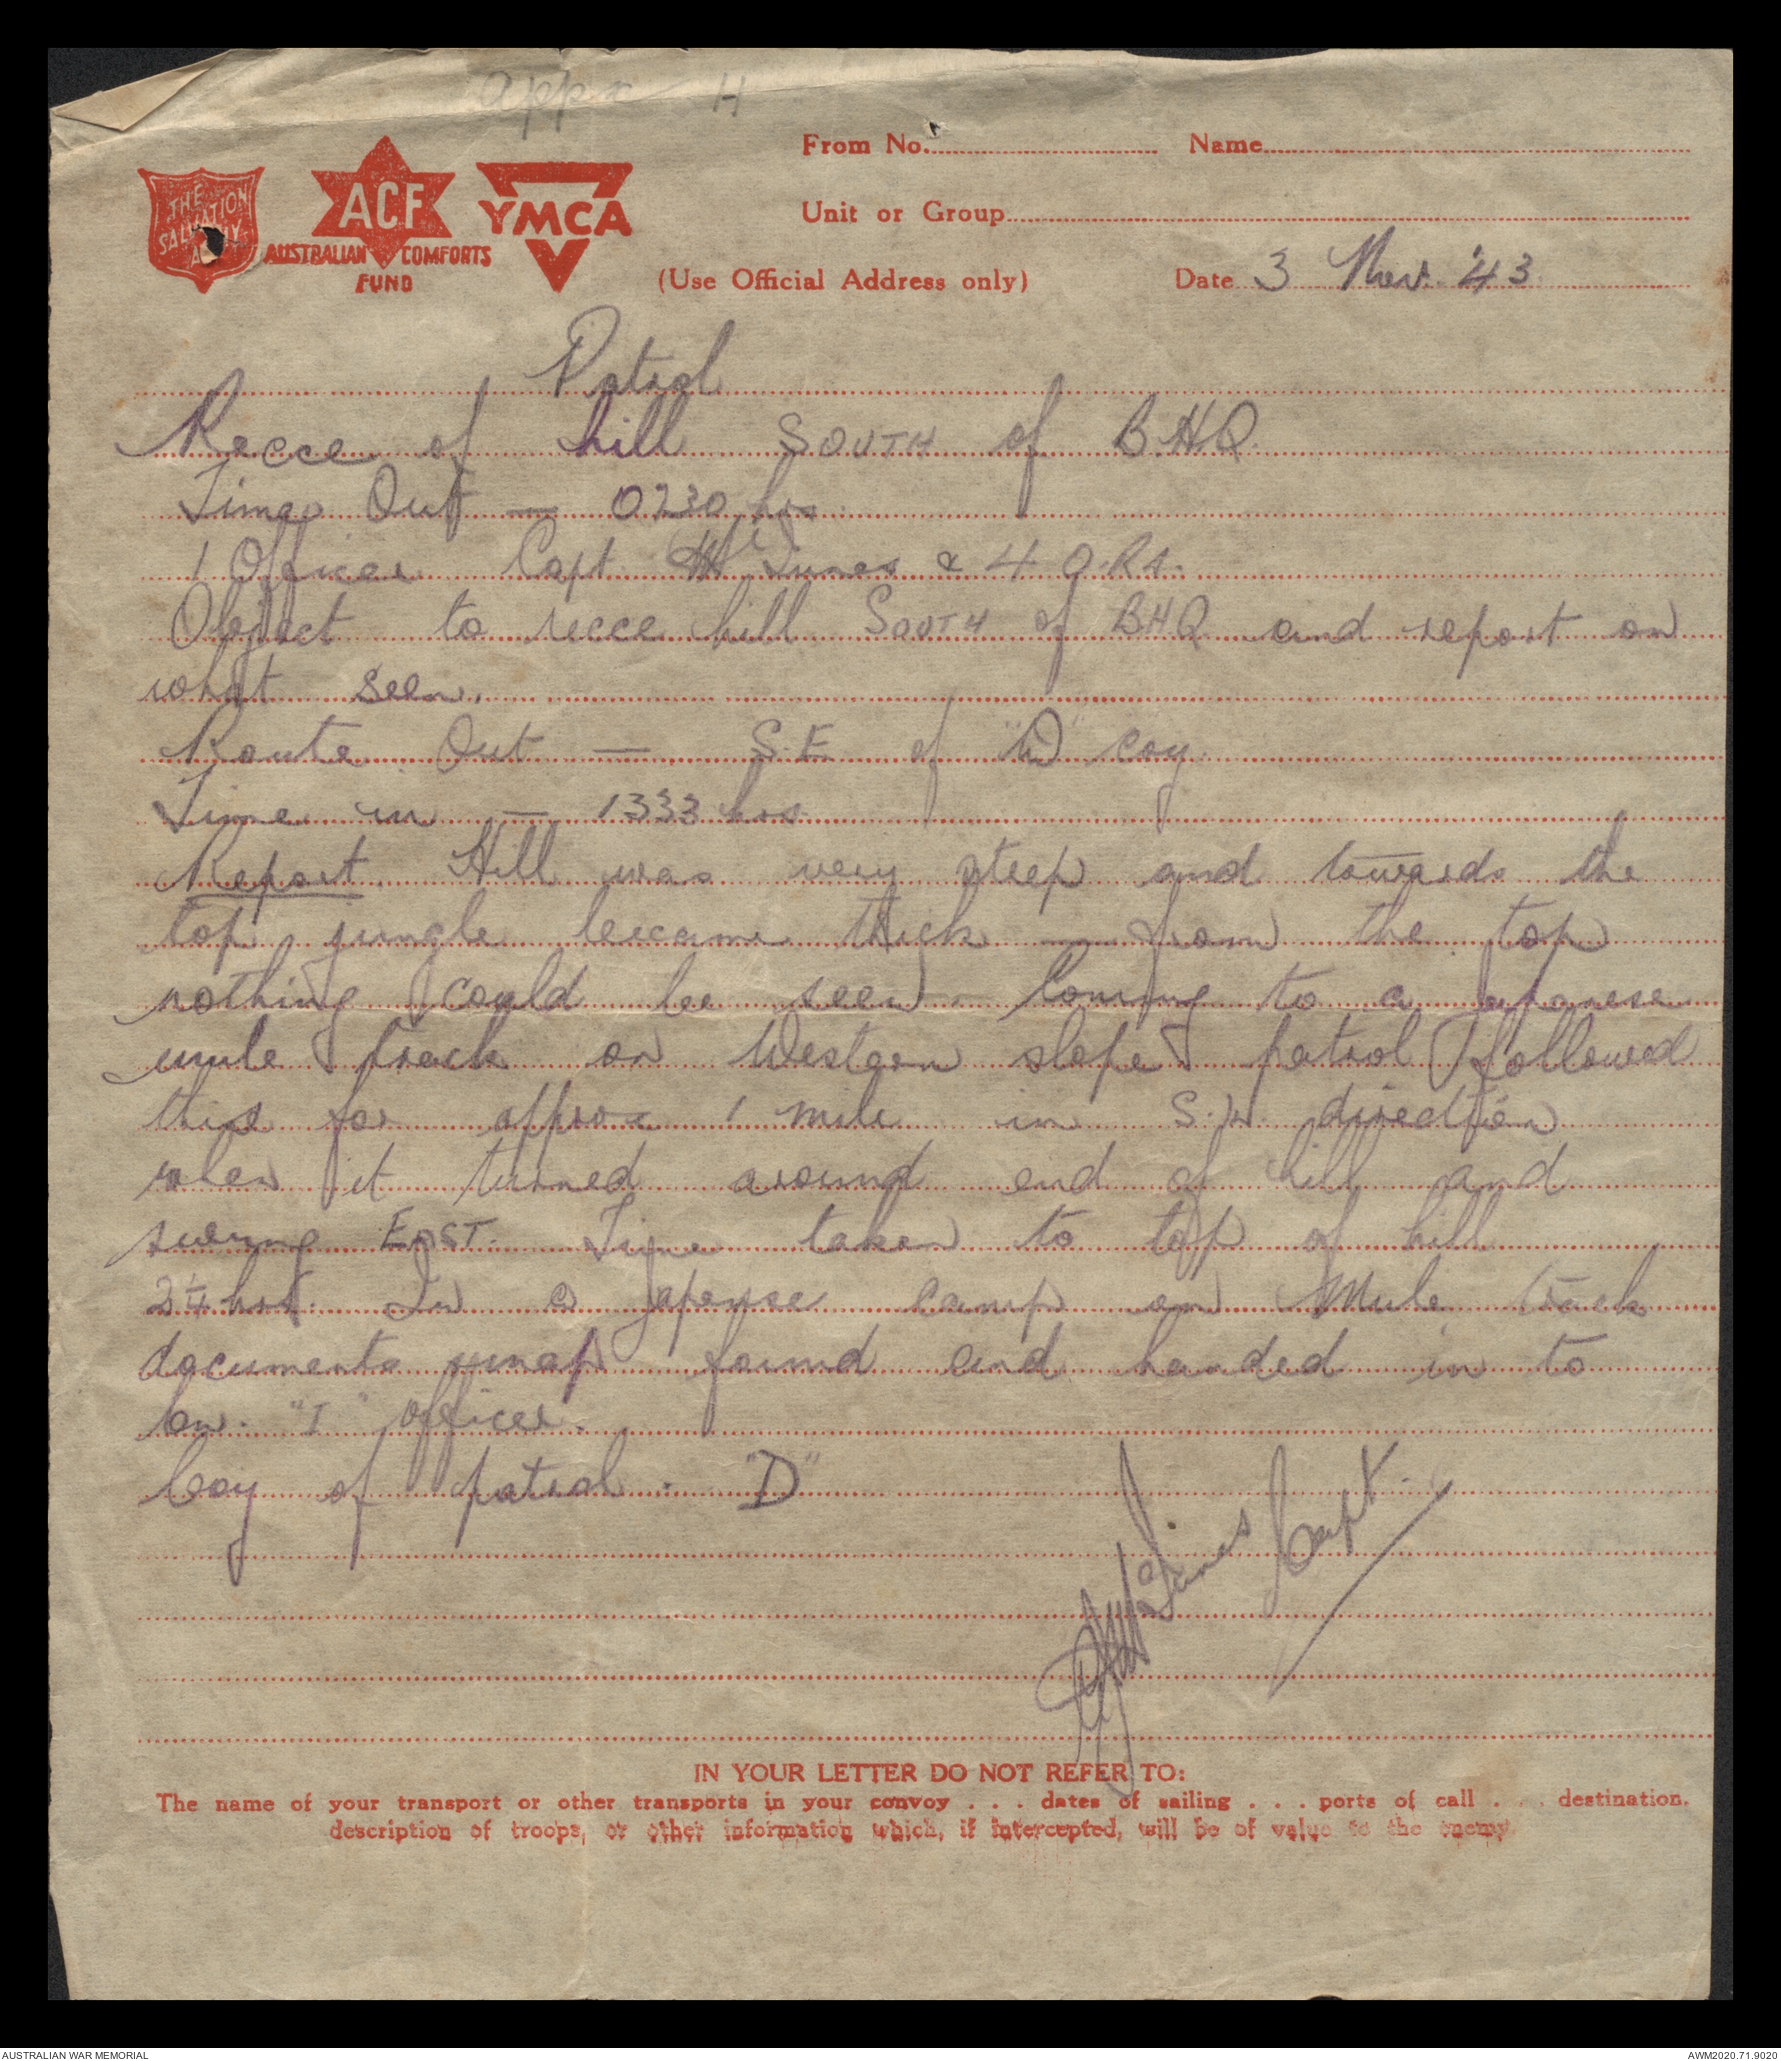 appx H
THE SALVATION ARMY
ACF
AUSTRALIAN COMFORTS FUND
YMCA
From No. Name
Unit or Group
(Use Official Address only) Date 3 Nov. '43
Patrol
Recce of hill SOUTH of B.H.Q.
Time Out — 0230 hrs.
1 Officer Capt. McInnes & 4 O.Rs.
Object to recce hill SOUTH of BHQ and report on
what seen.
Route Out — S.E. of "D" coy.
Time in — 1333 hrs.
Report Hill was very steep and towards the
top jungle became thick — from the top
nothing could be seen — Coming to a Japanese
mule track on Western slope patrol followed
this for approx 1 mile in S.W. direction
when it turned around end of hill and
swung EAST. Time taken to top of hill
2¼ hrs. In a Japense camp on Mule track
documents found and handed in to
bn. "I" officer.
Coy of patrol. "D"
McInnes Capt.
IN YOUR LETTER DO NOT REFER TO:
The name of your transport or other transports in your convoy . . . dates of sailing . . . ports of call . . . destination.
description of troops, or other information which, if intercepted, will be of value to the enemy.
AUSTRALIAN WAR MEMORIAL AWM2020.71.9020